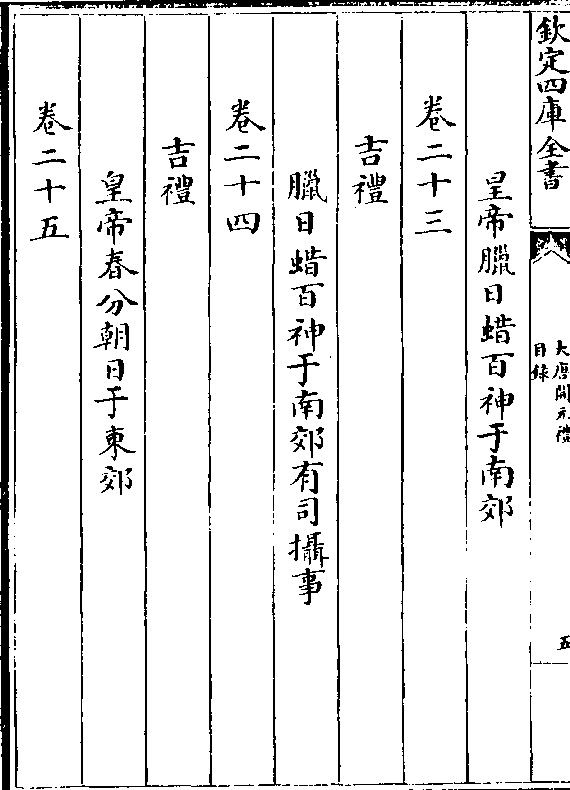 欽定四庫全書
大唐開元禮
目錄
五
皇帝臘日蜡百神于南郊
卷二十三
吉禮
臘日蜡百神于南郊有司攝事
卷二十四
吉禮
皇帝春分朝日于東郊
卷二十五